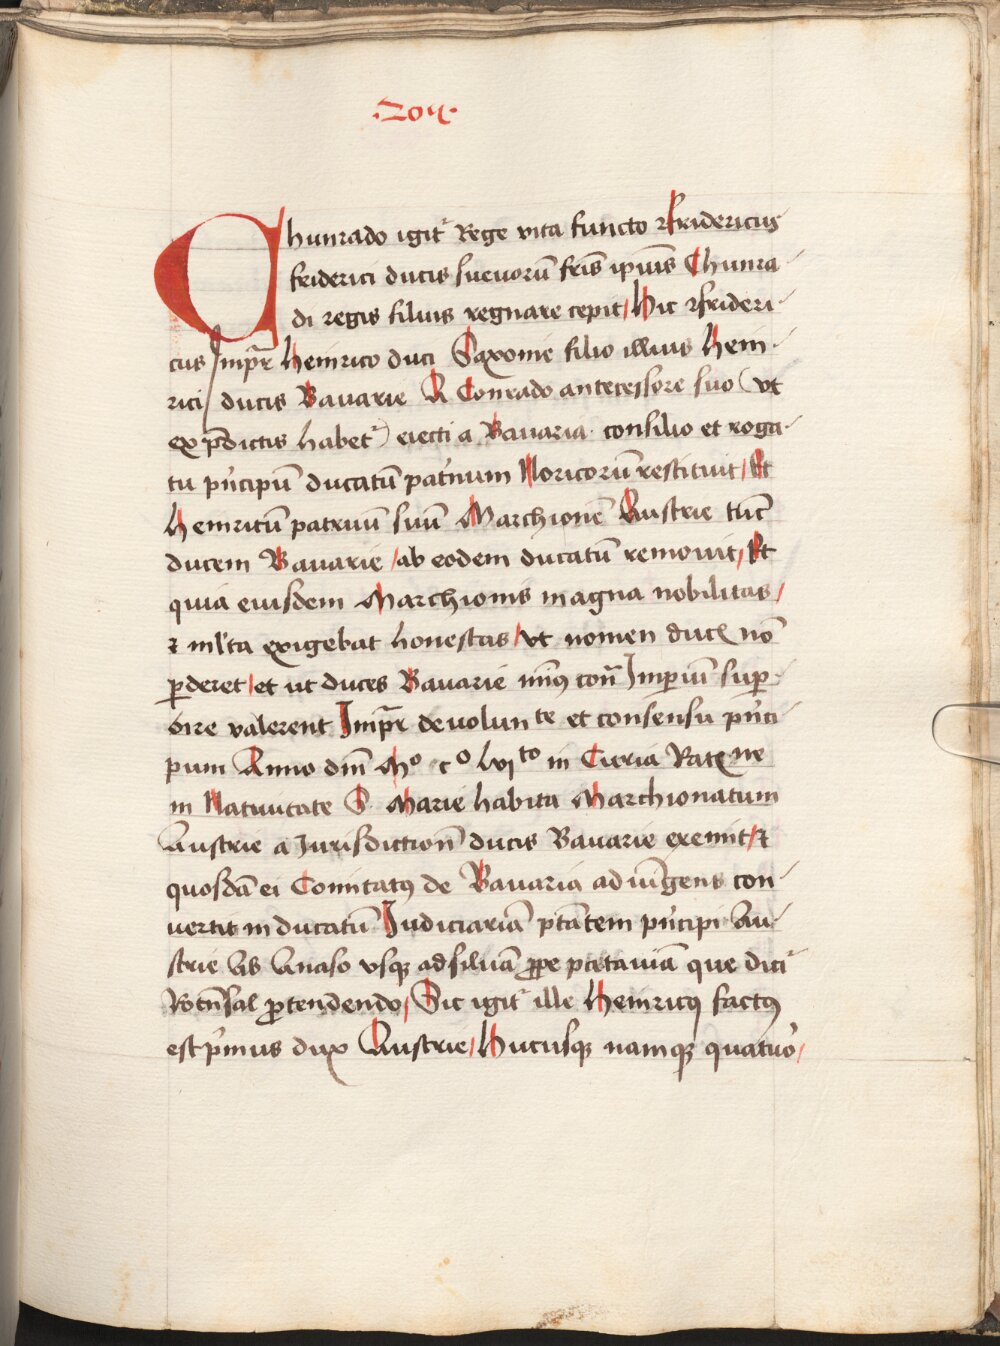 ·201·
Chunrado igitʳ Rege vita functo Fridericus
friderici ducis suevorū fr̄is ip̄ius Chunra-
di regis filius regnare cepit/ Hic frideri-
cus Imp̄r Heinrico duci Saxonie filio illius Hein-
rici/ ducis Bauarie A Conrado antecessore suo (vt
ex p̄dictis habetʳ) eiecti a Bauaria consilio et roga-
tu pͥncipū ducatū pat̉num Noricorū restituit/ Et
Heinricū patruū suū Marchionē Austrie tūc
ducem Bauarie/ ab eodem ducatū remouit/ Et
quia eiusdem Marchionis magna nobilitas/
⁊ ml̉ta exigebat honestas/ vt nomen ducꝭ nō
ꝑderet/ et ut duces Bauarie miꝰ con̄ Imperiū suꝑ-
bire valerent Imp̄r de volunte et consensu pͥnci-
pum Anno dn̄i Mᵒ cᵒ lvjᵗᵒ in Curia Ratꝭne
in Natiuitate S. Marie habita Marchionatum
Austrie a Jurisdiction̄ ducis Bauarie exemit/ ⁊
quosdā ei Comitatꝰ de Bauaria adiūgens con-
uertit in ducatū Judiciariā p̄tātem pͥncipi Au-
strie ab Anaso vsqꝫ ad siluā ꝓpe patauiā que diciʳ
Rotn̄sal ꝓtendendo/ Sic igitʳ ille Heinricꝰ factꝰ
est pͥmus dux Austrie/ Hucusqꝫ namqꝫ quatuo̓/